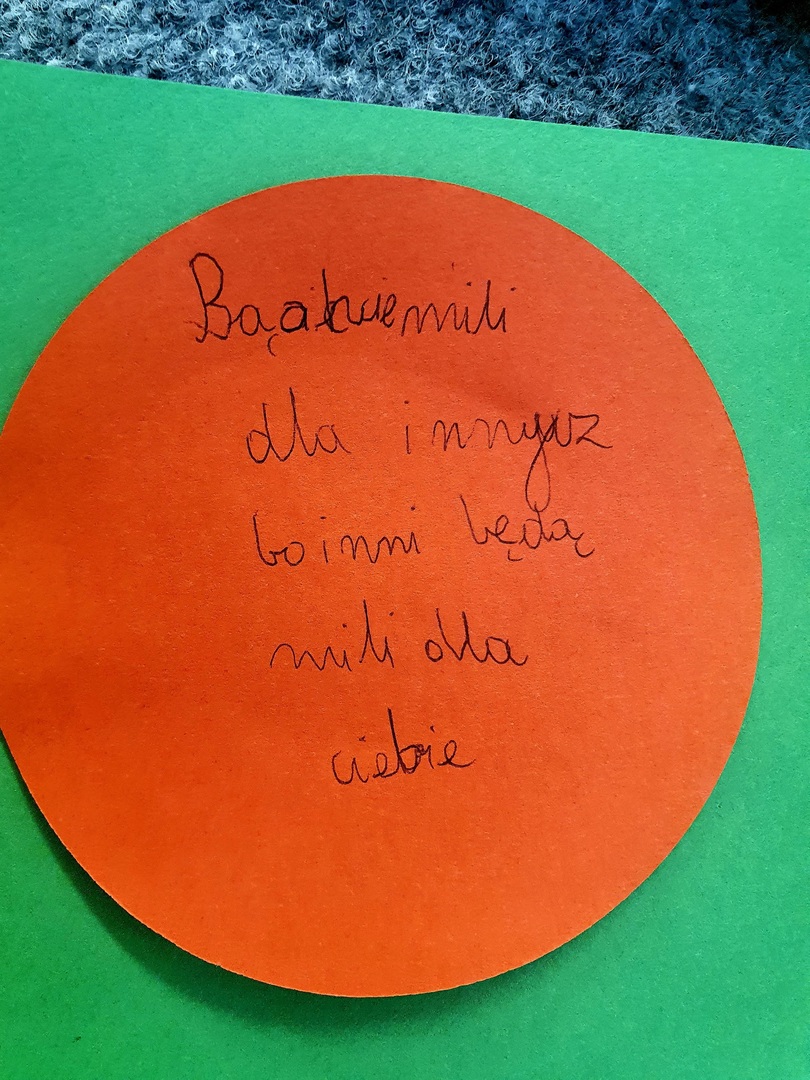 mili
dla
bo inni będą
mili dla
ciebie